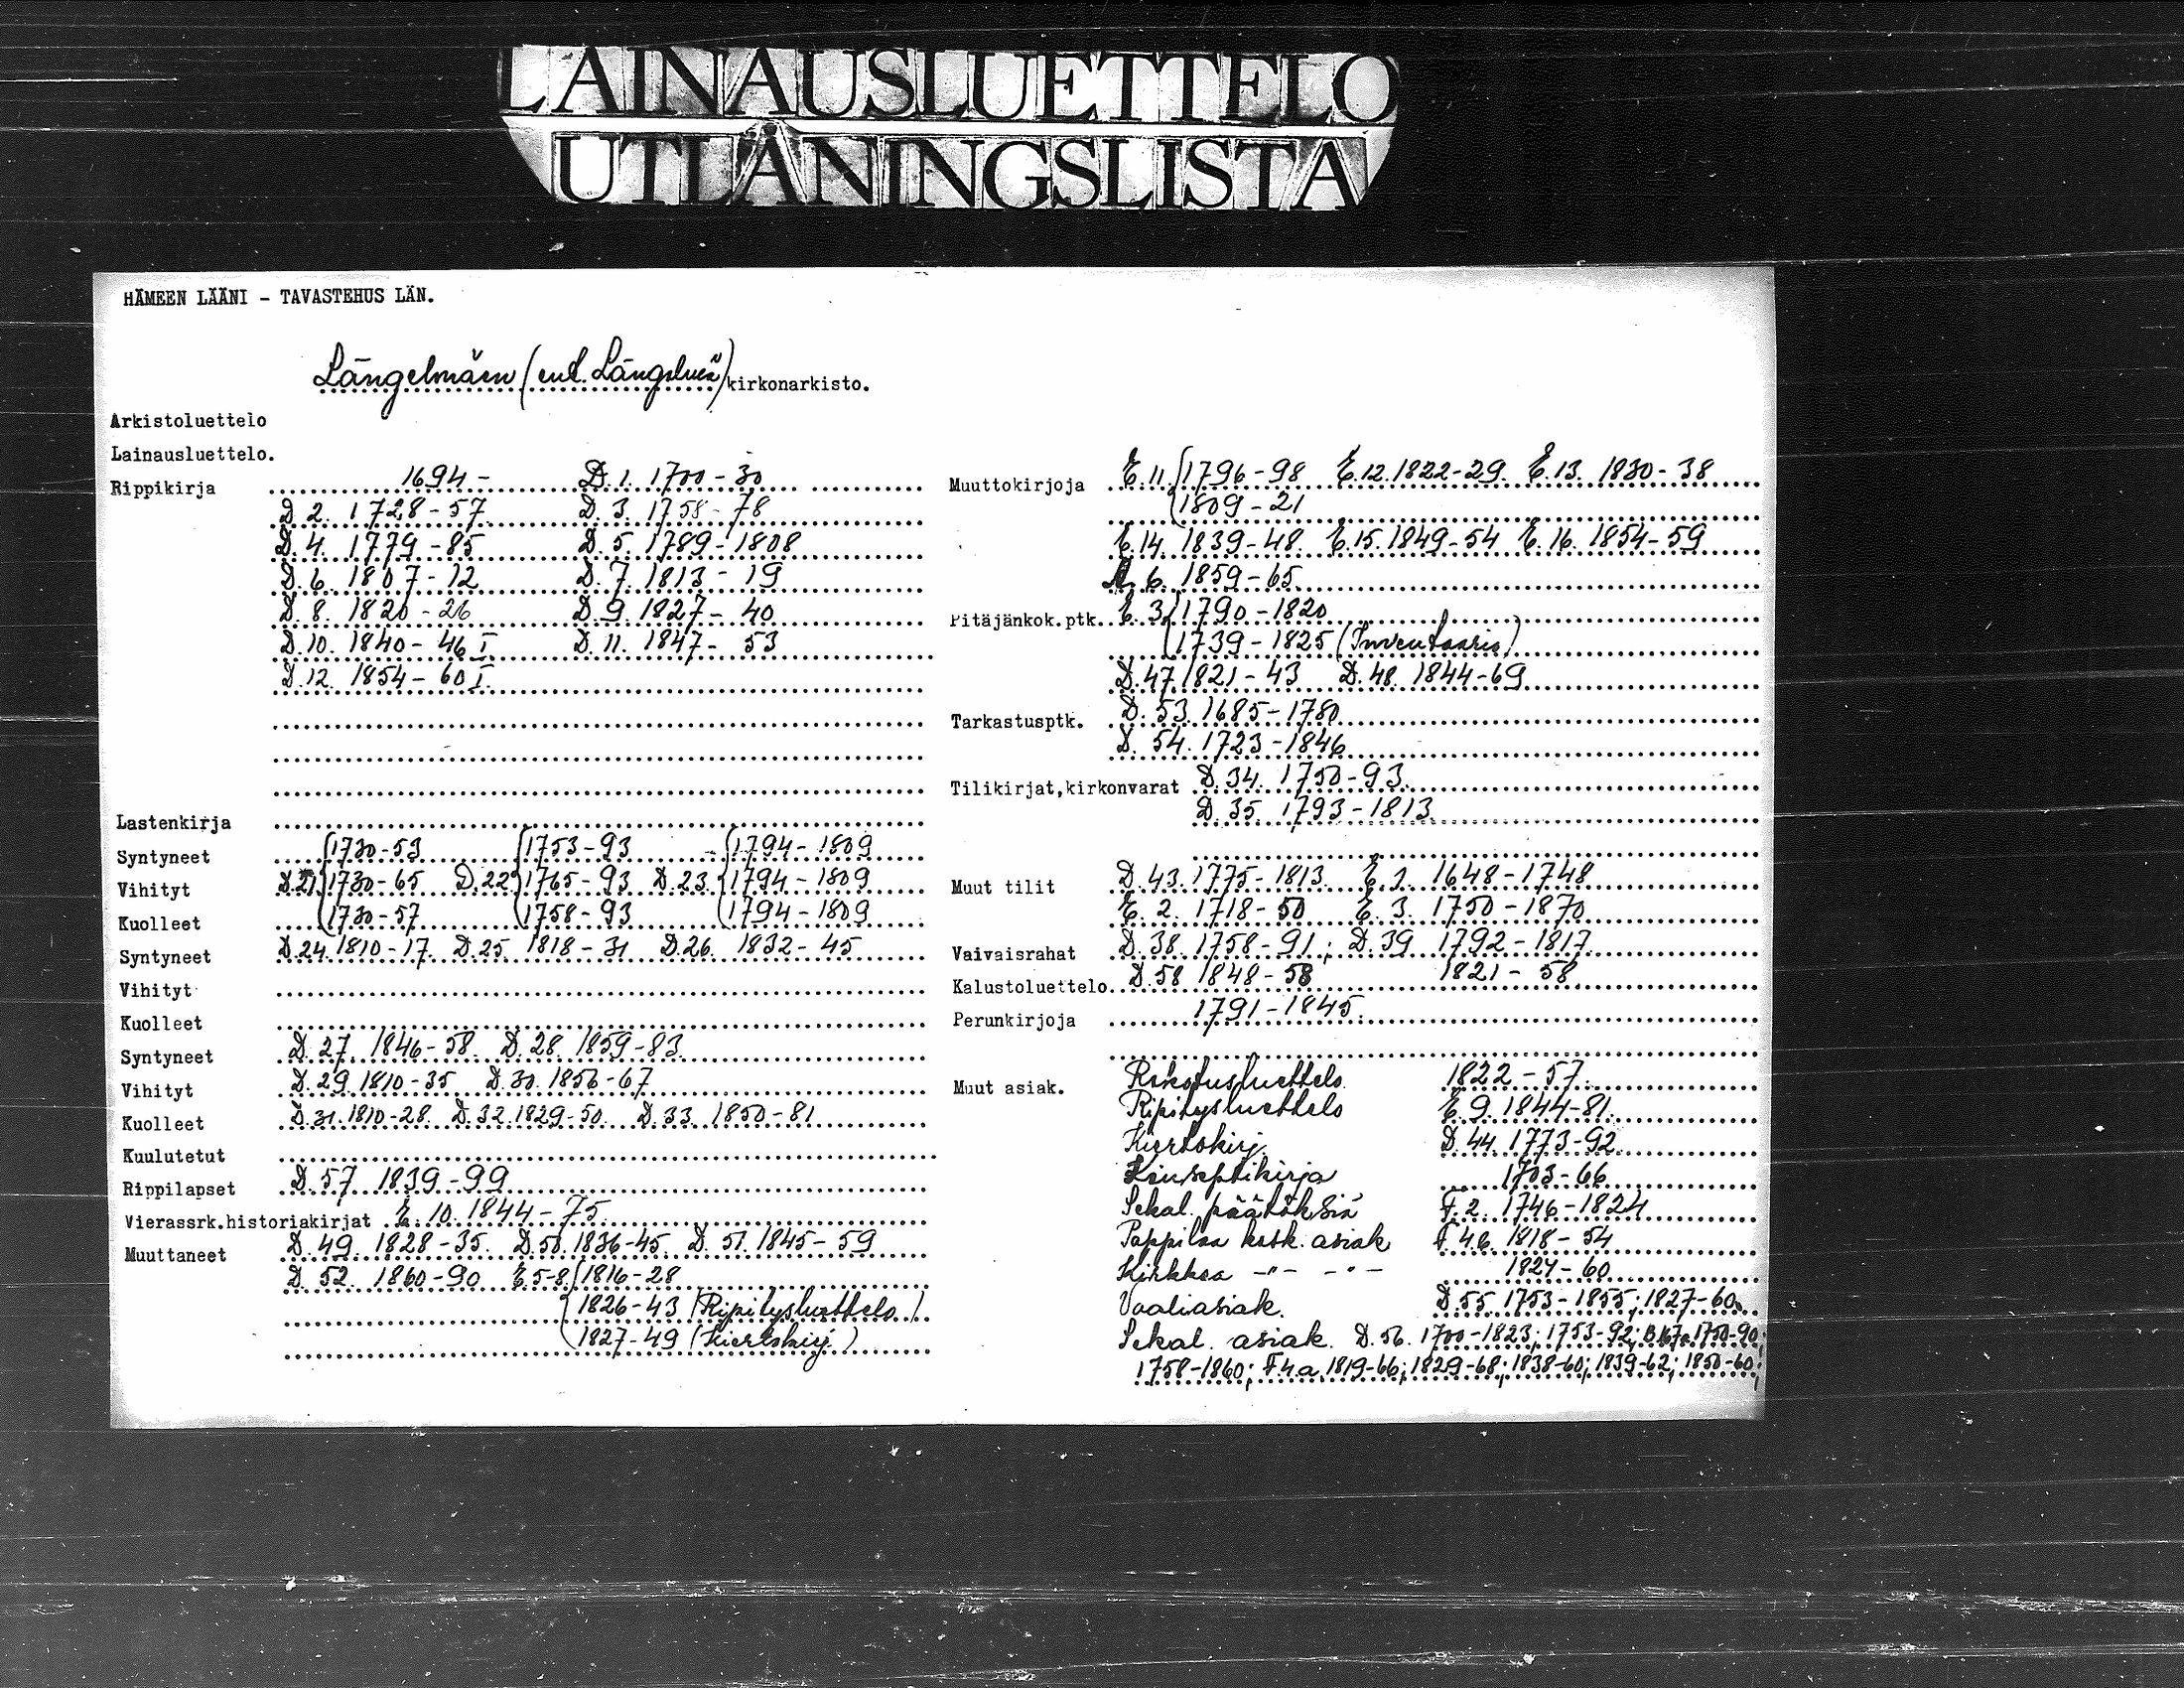 LAINAUSLUETTELO
UTLÅNINGSLISTA
HÄMEEN LÄÄNI - TAVASTEHUS LÄN.
Längelmäen (ent. Längelmä) kirkonarkisto.
Arkistoluettelo
Lainausluettelo.
Rippikirja 1694 - D. 1. 1700-30
D 2. 1728-57 D. 3. 1758-78
D. 4. 1779-85 D. 5. 1789-1808
D. 6. 1807-12 D. 7. 1813-19
D. 8. 1820-26 D. 9. 1827-40
D. 10. 1840-46 I D. 11. 1847-53
D. 12. 1854-60 I.
Lastenkirja
Syntyneet 1730-53 1753-93 1794-1809
Vihityt D.21. 1730-65 D.22 1765-93 D.23. 1794-1809
Kuolleet 1730-57 1758-93 1794-1809
Syntyneet D.24. 1810-17. D.25. 1818-31 D.26. 1832-45
Vihityt
Kuolleet
Syntyneet D. 27. 1846-58. D. 28. 1859-83
Vihityt D. 29. 1810-35 D. 30. 1856-67
Kuolleet D. 31. 1810-28. D. 32. 1829-50. D. 33. 1850-81
Kuulutetut
Rippilapset D. 57. 1839-99
Vierassrk.historiakirjat E. 10. 1844-75
Muuttaneet D. 49. 1828-35. D. 50. 1836-45. D. 51. 1845-59
D. 52. 1860-90 E. 5-8. 1816-28
1826-43 (Ripitysluettelo)
1827-49 (Kiertokirj.)
Muuttokirjoja E. 11. 1796-98 E. 12. 1822-29. E. 13. 1830-38
1809-21
E. 14. 1839-48. E. 15. 1849-54 E. 16. 1854-59
6. 1859-65
Pitäjänkok.ptk. E. 3. 1790-1820
1739-1825 (Inventaario)
D. 47. 1821-43 D. 48. 1844-69
Tarkastusptk. D. 53. 1685-1780
D. 54. 1723-1846
Tilikirjat,kirkonvarat D. 34. 1750-93
D. 35. 1793-1813
Muut tilit D. 43. 1775-1813. E. 1. 1648-1748
E. 2. 1718-50 E. 3. 1750-1870
Vaivaisrahat D. 38. 1758-91; D. 39. 1792-1817
Kalustoluettelo. D. 58 1848-58 1821-58
Perunkirjoja 1791-1845
Muut asiak. Rokotusluettelo 1822-57
Ripitysluettelo E. 9. 1844-81
Kiertokirj. D. 44. 1773-92
Konseptikirja 1703-66
Sekal. päätöksiä F. 2. 1746-1824
Pappilaa kosk. asiak F 4 b. 1818-54
Kirkkoa -"- -"- 1824-60
Vaaliasiak. D. 55. 1753-1855; 1827-60
Sekal. asiak. D. 56. 1700-1823; 1753-92; 1750-90;
1758-1860; F 4 a. 1819-66; 1829-68; 1838-60; 1839-62; 1850-60;